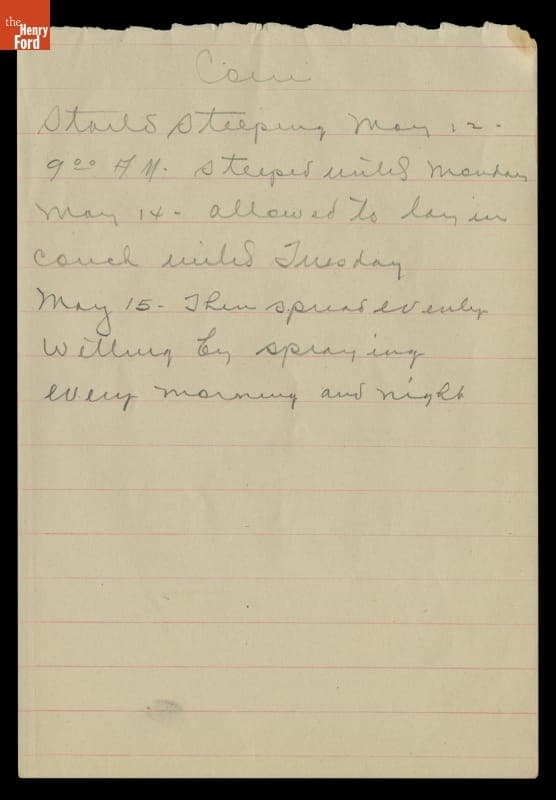 the
Henry
Ford
Corn
Started Steeping May 12-
9 00 A M. steeped until Monday
May 14- allowed to lay in
couch until Tuesday
May 15- Then spread evenly
Wetting by spraying
every morning and night